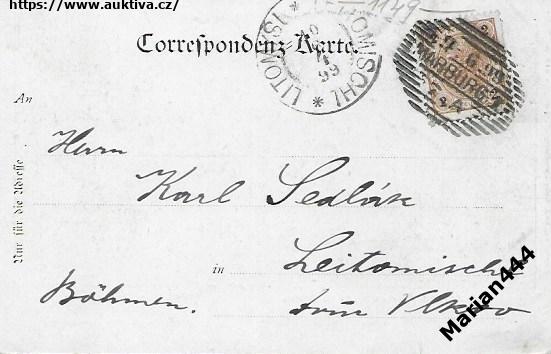 https://www.auktiva.cz/
1149
Correspondenz-Karte.
LEITOMISCHL * LITOMYŠL *
99
6.99
MARBURG
An
Herrn
Karl Sedlák
in
Leitomischl
Böhmen.
Nur für die Adresse
Marian444